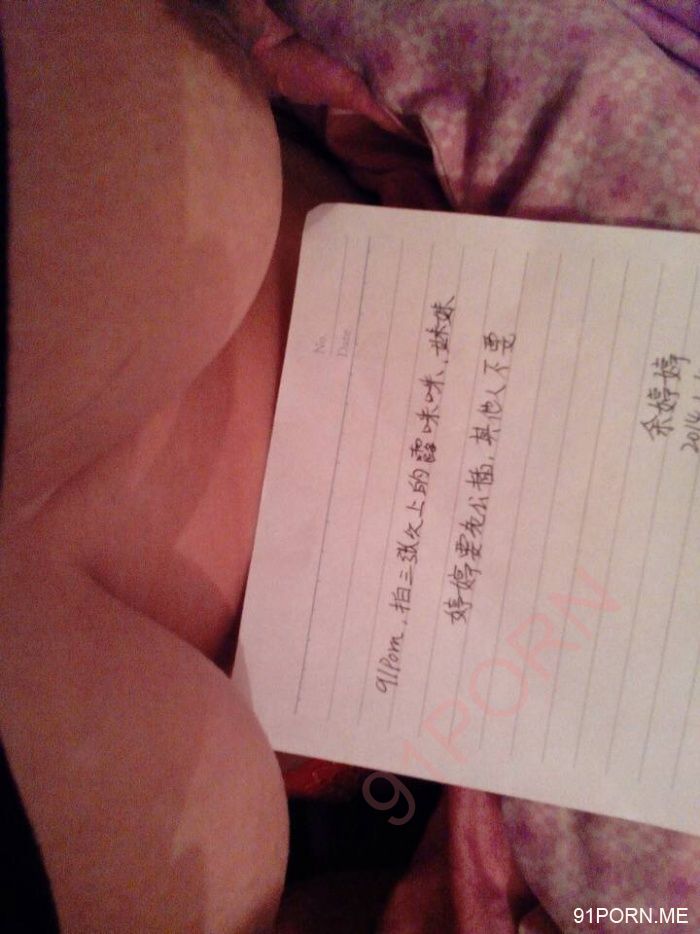 No.
Date
91Porn，拍三张以上的露咪咪、妹妹
婷婷要老公插，其他人不要
余婷婷
2014
91PORN
91PORN.ME